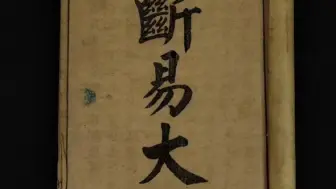 斷易大